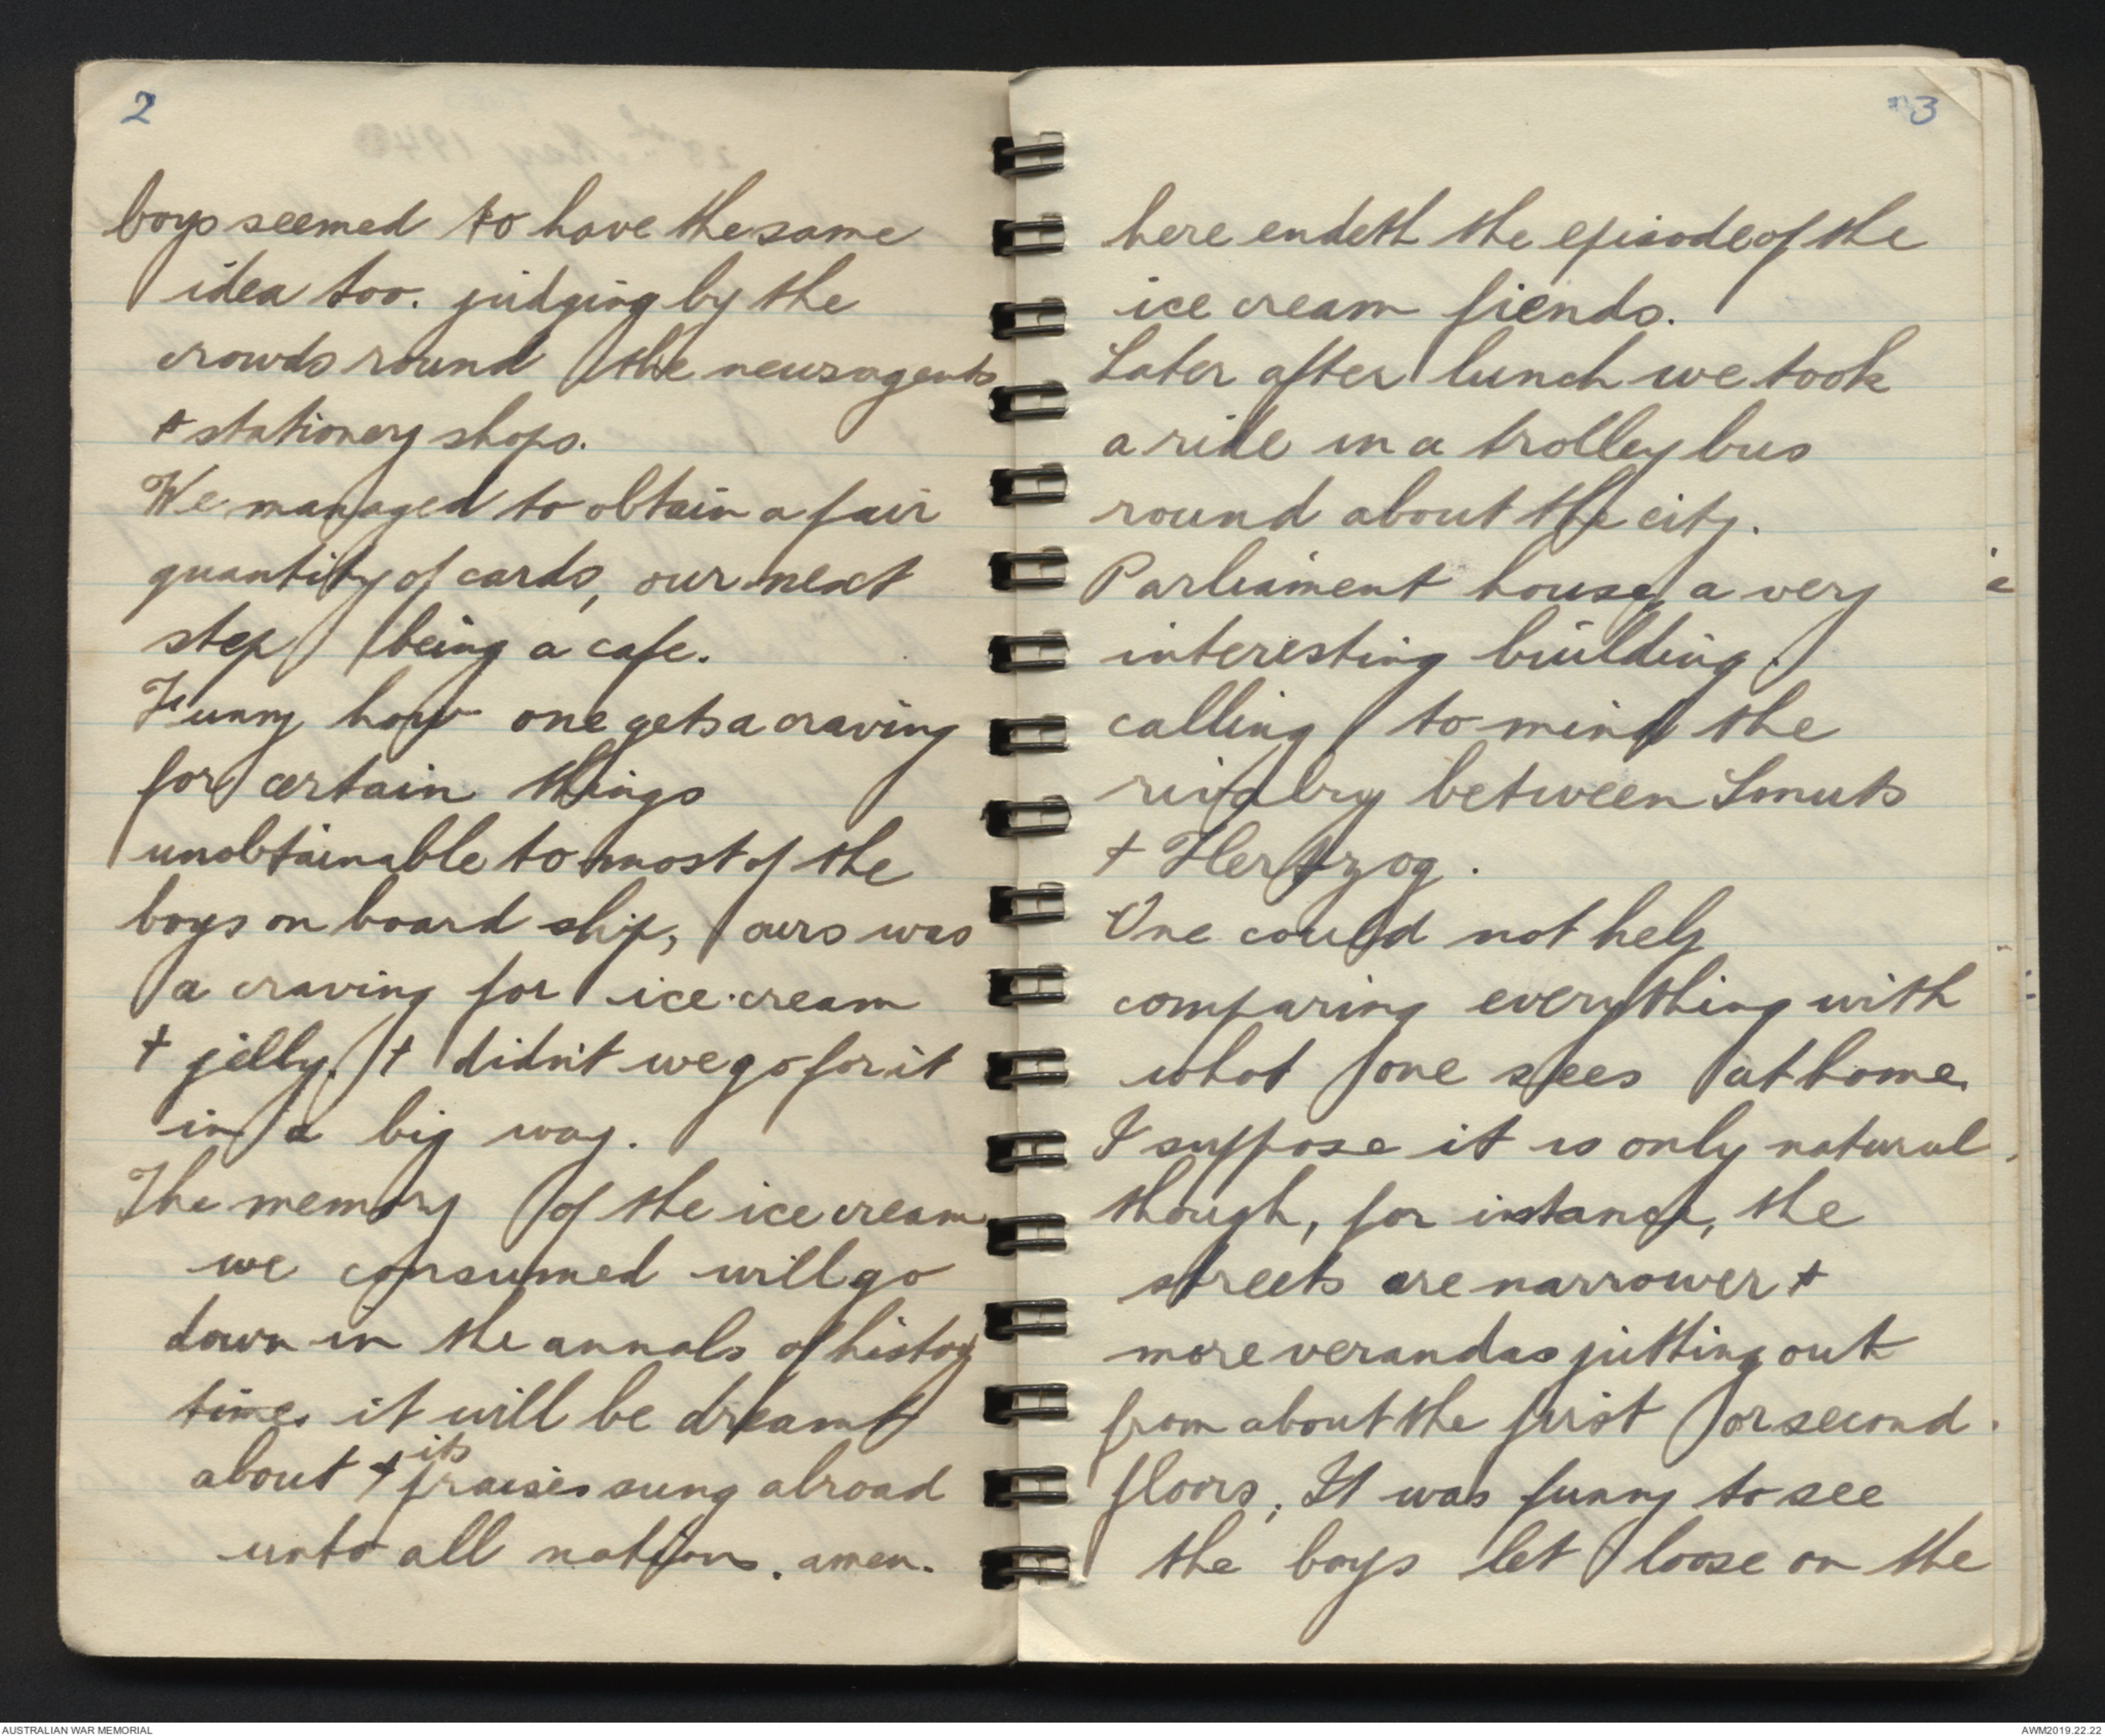 2
boys seemed to have the same
idea too. judging by the
crowds round the newsagents
+ stationery shops.
We managed to obtain a fair
quantity of cards, our next
step being a cafe.
Funny how one gets a craving
for certain things
unobtainable to most of the
boys on board ship, ours was
a craving for ice-cream
+ jelly, + didn't we go for it
in a big way.
The memory of the ice cream
we consumed will go
down in the annals of history
times it will be dreamt
about + its praises sung abroad
unto all nations. amen.
3
here endeth the episode of the
ice cream fiends.
Later after lunch we took
a ride in a trolley bus
round about the city.
Parliament house, a very
interesting building.
calling to mind the
rivalry between Smuts
+ Hertzog.
One could not help
comparing everything with
what one sees at home.
I suppose it is only natural
though, for instance, the
streets are narrower +
more verandas jutting out
from about the first or second
floors. It was funny to see
the boys let loose on the
AUSTRALIAN WAR MEMORIAL
AWM2019.22.22